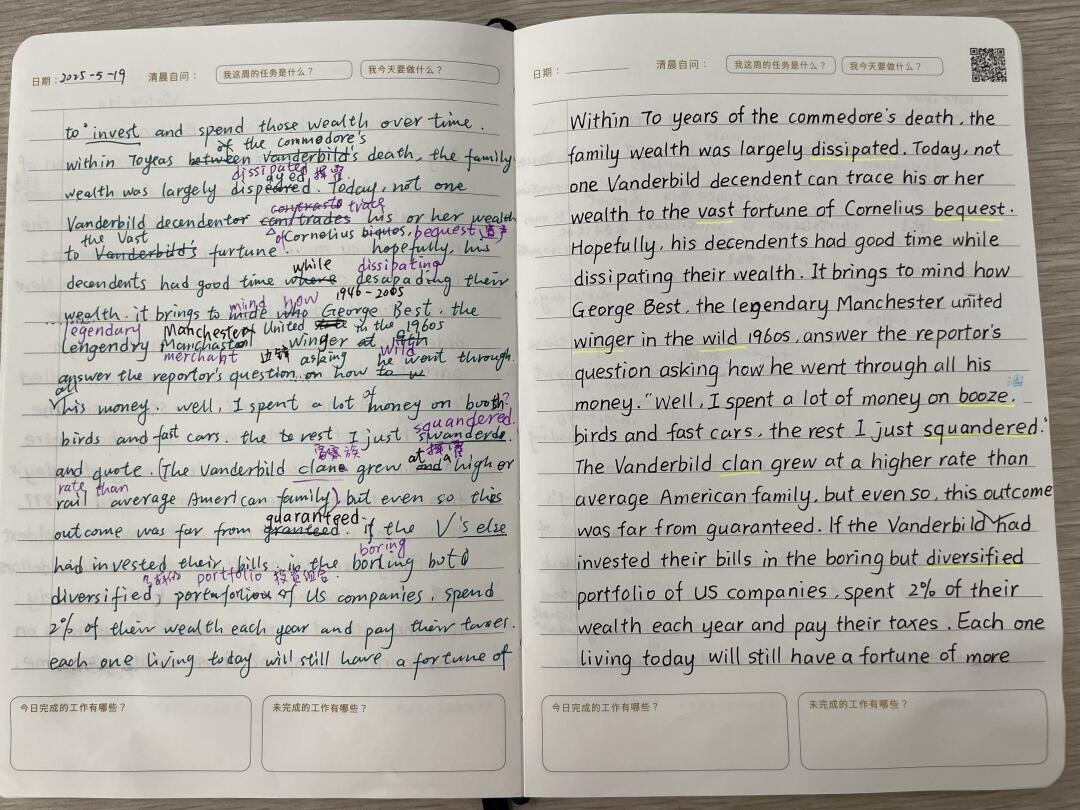 日期：2025-5-19 清晨自问： 我这周的任务是什么？ 我今天要做什么？
to invest and spend those wealth over time.
of the commodore's
within 70yeas between Vanderbild's death, the family
dissipated ayed 挥霍
wealth was largely dispeared. Today, not one
contrasts trace
Vanderbild decendentor cantrades his or her wealth
the Vast of Cornelius biquos, bequest 遗产
to Vanderbild's furtune. hopefully, his
while dissipating
decendents had good time where desapading their
mind how 1946-2005
wealth. it brings to mide who George Best. the
legendary Manchester United in the 1960s
Lengendry Manchastor winger at
merchant 边锋 asking he went wild
answer the reportor's question on how to w through.
all of
his money. well, I spent a lot money on booth?
squandered.
birds and fast cars. the to rest I just swanderde.
富豪族 at a 挥霍
and quote. (The Vanderbild clane grew and high or
rate than
rail average American family), but even so this
guaranteed.
outcome was far from granteed. if the V's else
boring
had invested their bills in the borling but
portfolio 投资组合.
diversified, portafoliou of US companies. spend
2% of their wealth each year and pay their taxes.
each one living today will still have a fortune of
今日完成的工作有哪些？ 未完成的工作有哪些？
日期： 清晨自问： 我这周的任务是什么？ 我今天要做什么？
Within 70 years of the commedore's death, the
family wealth was largely dissipated. Today, not
one Vanderbild decendent can trace his or her
wealth to the vast fortune of Cornelius bequest.
Hopefully, his decendents had good time while
dissipating their wealth. It brings to mind how
George Best. the legendary Manchester united
winger in the wild 1960s, answer the reportor's
question asking how he went through all his
money. "Well, I spent a lot of money on booze,
birds and fast cars, the rest I just squandered."
The Vanderbild clan grew at a higher rate than
average American family, but even so, this outcome
was far from guaranteed. If the Vanderbild had
invested their bills in the boring but diversified
portfolio of US companies, spent 2% of their
wealth each year and pay their taxes. Each one
living today will still have a fortune of more
今日完成的工作有哪些？ 未完成的工作有哪些？